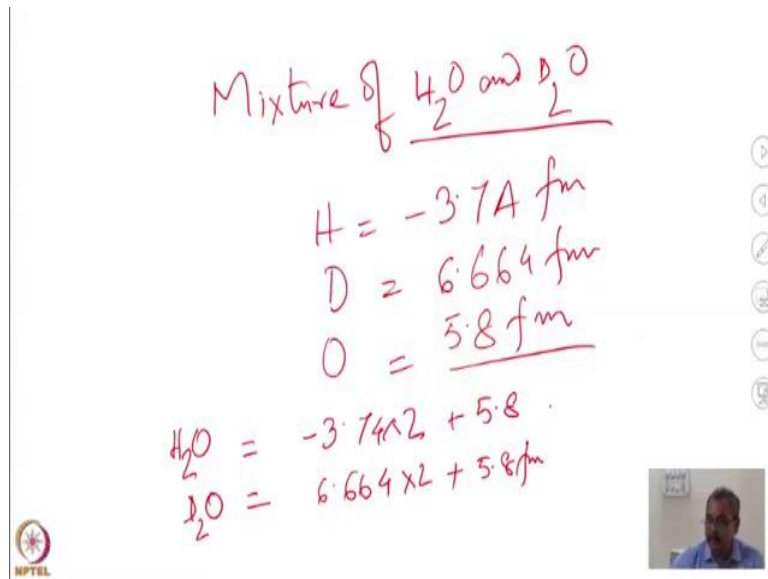 Mixture of H2O and D2O
H = -3.74 fm
D = 6.664 fm
O = 5.8 fm
H2O = -3.74×2 + 5.8
D2O = 6.664×2 + 5.8 fm
NPTEL